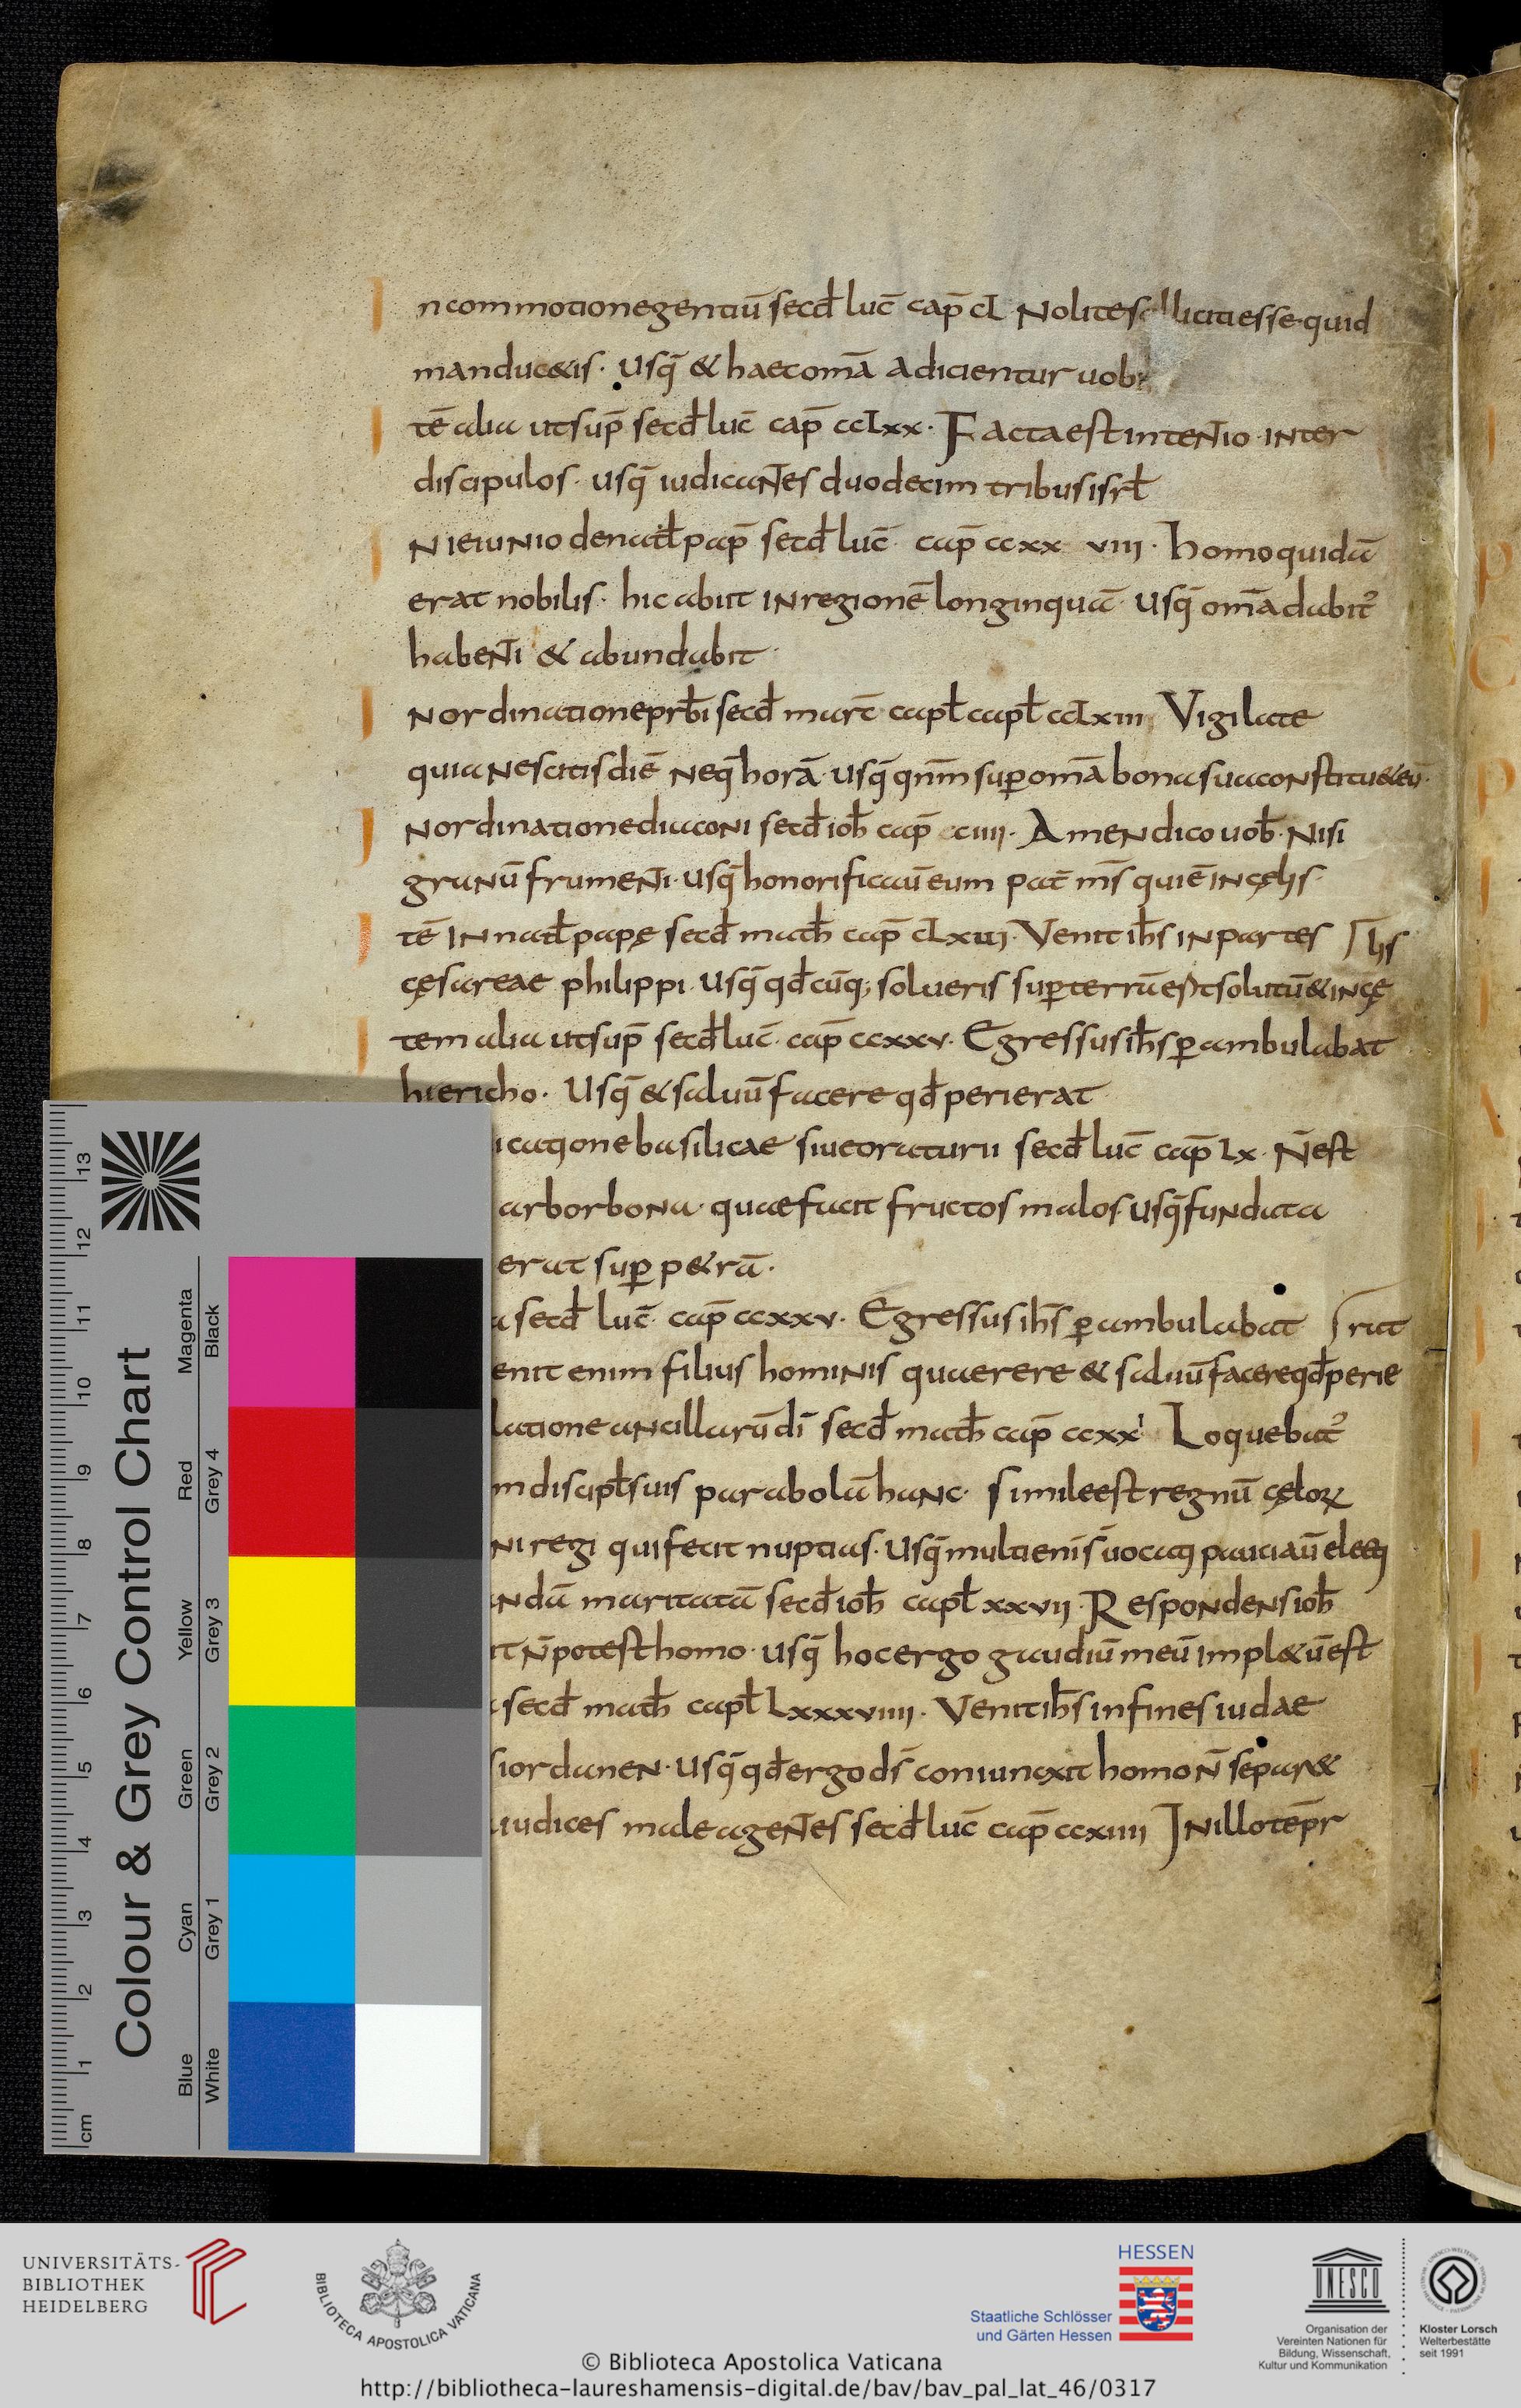 In commotione gentiū secd̄ luc̄ cap̄ cL Nolite solliciti esse quid
manduc&is · Usq̄ & haec omā adicientur uobis
Itē alia ut sup̄ secd̄ luc̄ cap̄ ccLxx · Facta est intentio inter
discipulos · usq̄ iudicantes duodecim tribus isrł
In ieiunio de natł pap̄ secd̄ luc̄ cap̄ ccxx viii · homo quidā
erat nobilis · hic abiit in regionē longinquā · Usq̄ omā dabit᷒
habenti & abundabit
In ordinatione prb̄i secd̄ marc̄ capł capł ccLxiii Vigilate
quia nescitis diē neq̄ horā · usq̄ qnm̄ sup̄ omā bona sua constitu&eū ·
In ordinatione diaconi secd̄ ioh̄ cap̄ cciiii · Amen dico uob̄ · Nisi
granū frumenti · usq̄ honorificauī eum pat̄ ms̄ qui ē in cęlis
Itē in natł papę secd̄ math̄ cap̄ cLxuj · Venit ih̄s in partes
cęsareae philippi · Usq̄ qd̄ cūq; solueris sup̄ terrā est solutū & in cę lis
Item alia ut sup̄ secd̄ luc̄ · cap̄ ccxxv · Egressus ih̄s ꝑambulabat
hiericho · Usq̄ & saluū facere qd̄ perierat
icatione basilicae siue oraturii secd̄ luc̄ cap̄ Lx · N̄ est
arbor bona · quae facit fructos malos · usq̄ fundata
erat sup̄ p&rā ·
a secd̄ luc̄ · cap̄ ccxxv · Egressus ih̄s ꝑambulabat
enit enim filius hominis quaerere & saluū facere qd̄ perie rat
latione ancillarū dī secd̄ math̄ cap̄ ccxxi Loquebat᷒
m discipł suis parabolā hanc · simile est regnū cęloꝝ
ni regi qui fecit nuptias · Usq̄ multi enī s̄ uocati pauci aū electi
ndā maritatā secd̄ ioh̄ capł xxvij · Respondens ioh̄
it N̄ potest homo · usq̄ hoc ergo gaudiū meū impl&ū est
a secd̄ math̄ capł Lxxxviiij · Venit ih̄s in fines iudae
s iordanen · Usq̄ qd̄ ergo ds̄ coniunxit homo n̄ separ&
iudices male agentes secd̄ luc̄ cap̄ ccxiiij In illo tēpr
Colour & Grey Control Chart
Magenta Black
Red Grey 4
Yellow Grey 3
Green Grey 2
Cyan Grey 1
Blue White
13 12 11 10 9 8 7 6 5 4 3 2 1 cm
UNIVERSITÄTS-
BIBLIOTHEK
HEIDELBERG
BIBLIOTECA APOSTOLICA VATICANA
HESSEN
Staatliche Schlösser
und Gärten Hessen
UNESCO
Organisation der
Vereinten Nationen für
Bildung, Wissenschaft,
Kultur und Kommunikation
Kloster Lorsch
Welterbestätte
seit 1991
© Biblioteca Apostolica Vaticana
http://bibliotheca-laureshamensis-digital.de/bav/bav_pal_lat_46/0317